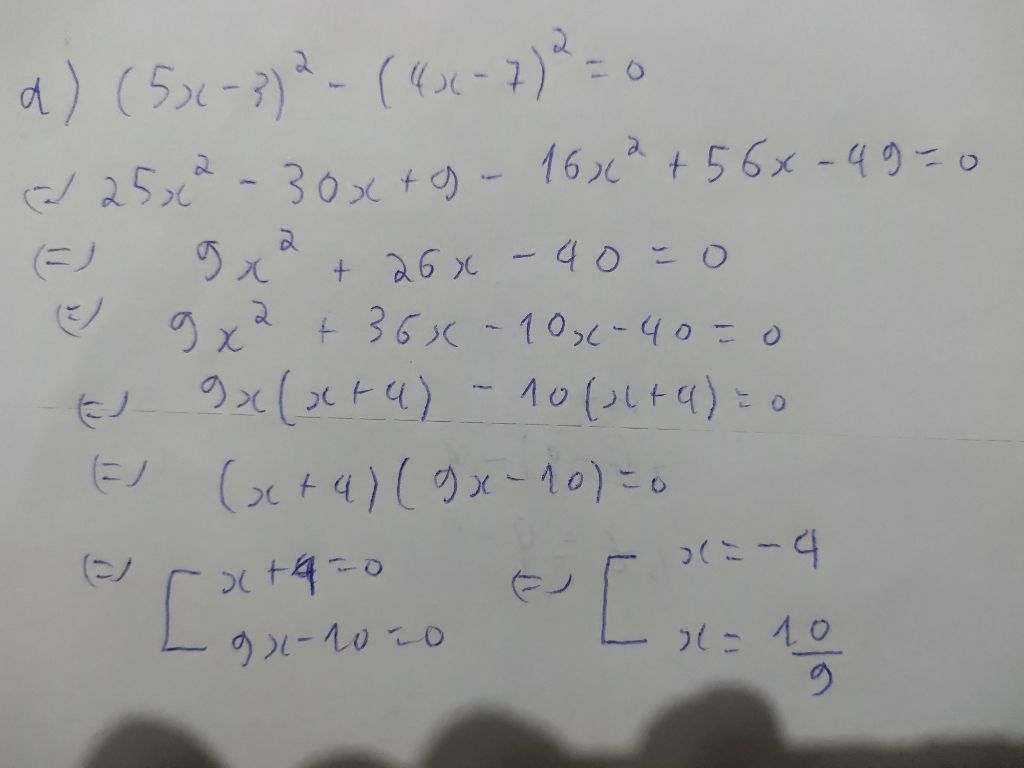 d) (5x-3)² - (4x-7)² = 0
(=) 25x² - 30x + 9 - 16x² + 56x - 49 = 0
(=) 9x² + 26x - 40 = 0
(=) 9x² + 36x - 10x - 40 = 0
(=) 9x(x+4) - 10(x+4) = 0
(=) (x+4)(9x-10) = 0
(=) [ x+4=0 (=) [ x = -4
9x-10=0 x = 10/9